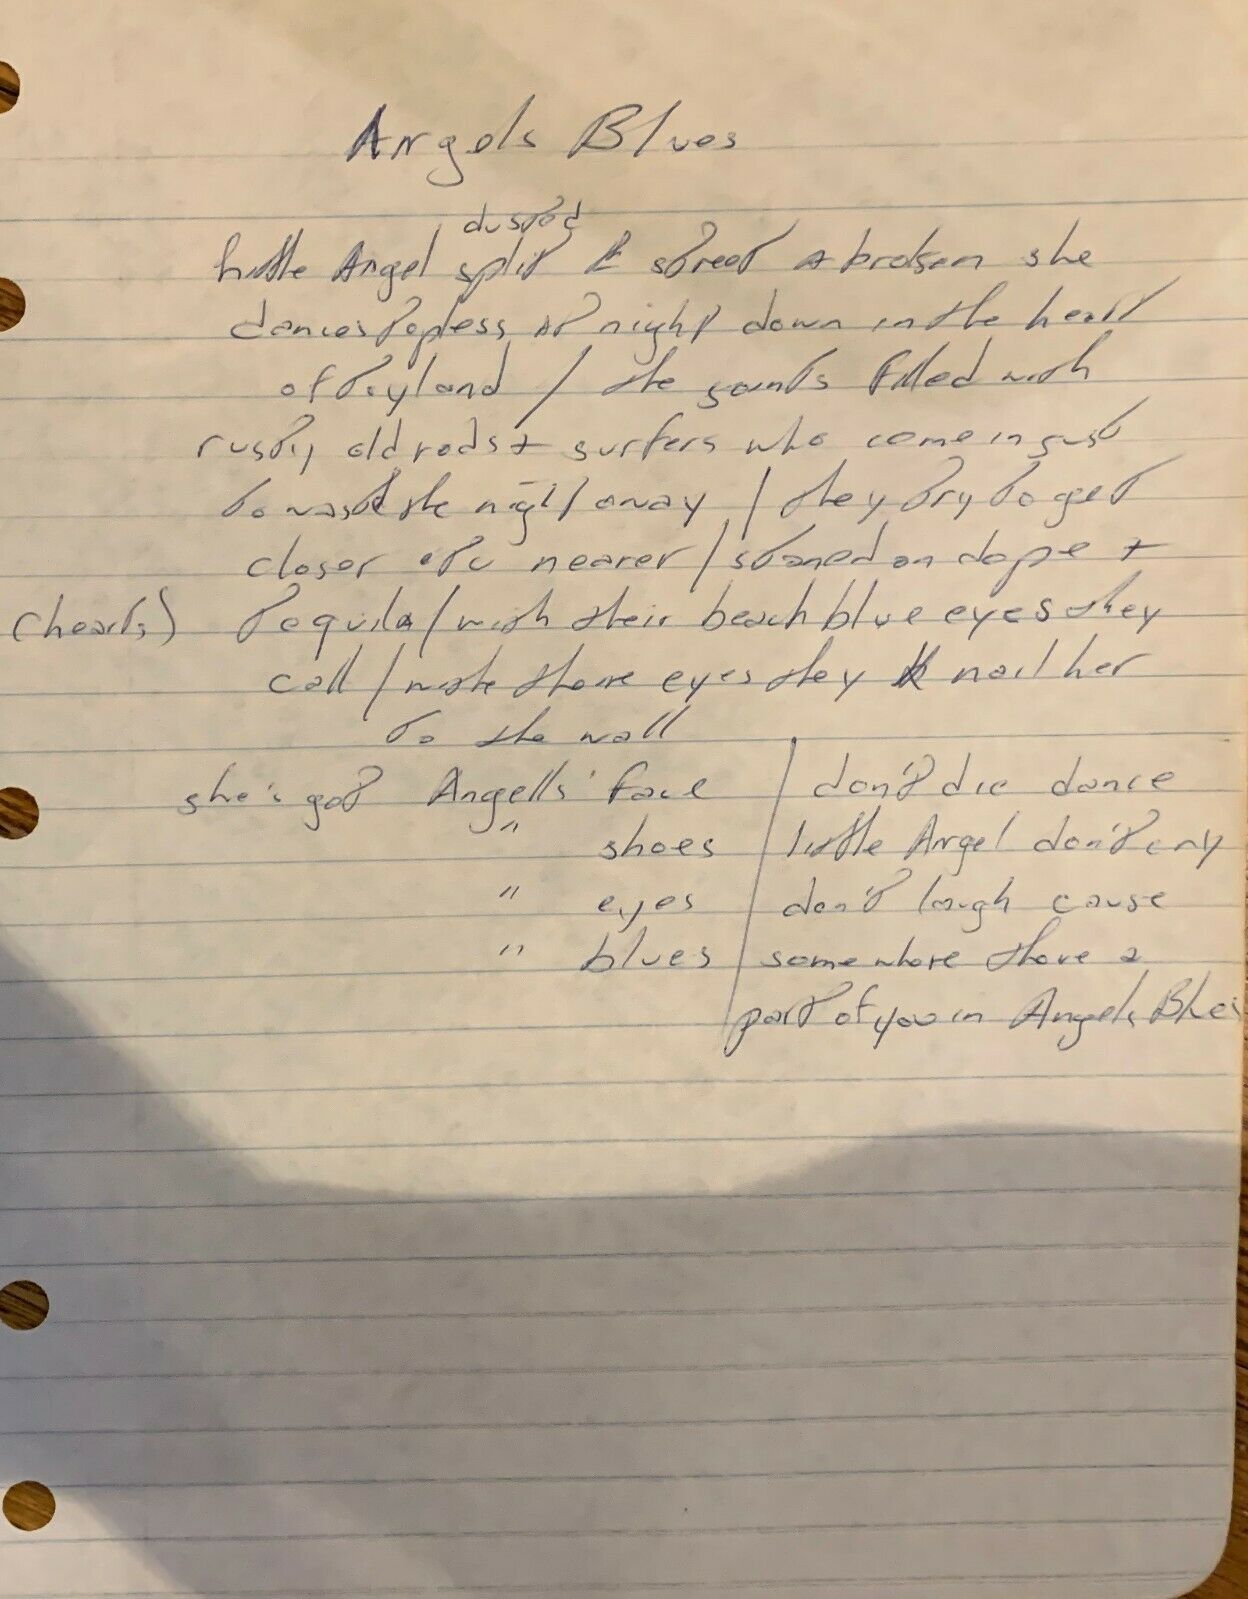 Angels Blues
dusted
little Angel split & street & broken she
dances topless at night down in the heart
of toyland / the joints filled with
rusty old rods + surfers who come in just
to waste the night away / they try to get
closer etc nearer / stoned on dope +
(hearts) tequila / with their beach blue eyes they
call / with there eyes they nail her
to the wall
she's got Angells' face / don't die dance
" shoes / little Angel don't cry
" eyes / don't laugh cause
" blues / somewhere there a
part of you in Angels Blues